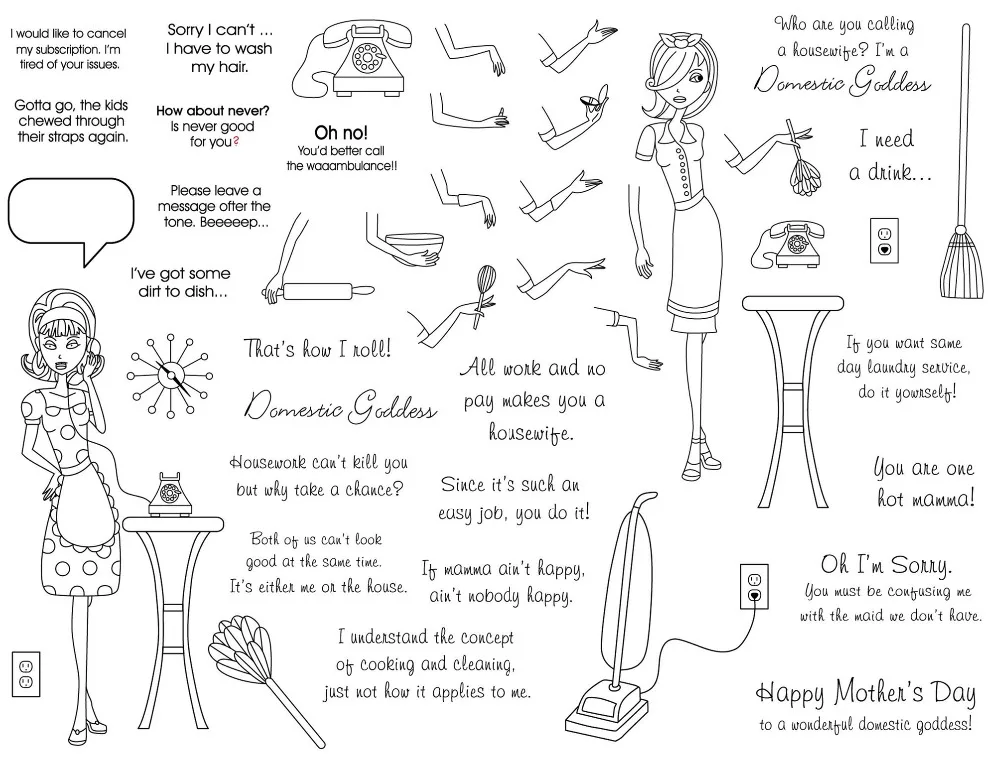 I would like to cancel
my subscription. I'm
tired of your issues.
Sorry I can't ...
I have to wash
my hair.
Gotta go, the kids
chewed through
their straps again.
How about never?
Is never good
for you?
Oh no!
You'd better call
the waaambulance!!
Please leave a
message ofter the
tone. Beeeeep...
I've got some
dirt to dish...
Who are you calling
a housewife? I'm a
Domestic Goddess
I need
a drink...
That's how I roll!
Domestic Goddess
All work and no
pay makes you a
housewife.
If you want same
day laundry service,
do it yourself!
Housework can't kill you
but why take a chance?
Since it's such an
easy job, you do it!
You are one
hot mamma!
Both of us can't look
good at the same time.
It's either me or the house.
If mamma ain't happy,
ain't nobody happy.
Oh I'm Sorry.
You must be confusing me
with the maid we don't have.
I understand the concept
of cooking and cleaning,
just not how it applies to me.
Happy Mother's Day
to a wonderful domestic goddess!